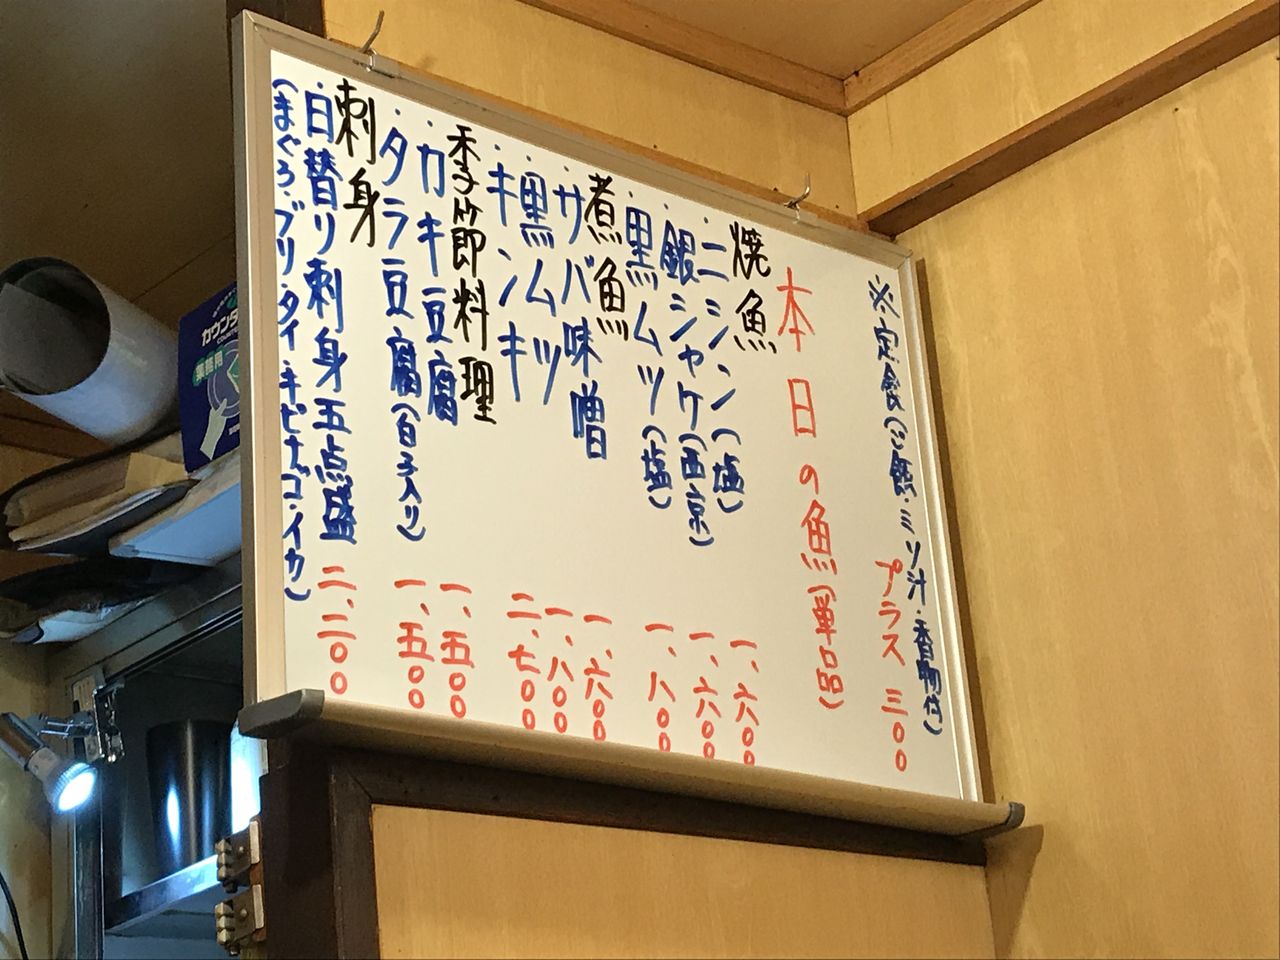 ※定食(ご飯・ミソ汁・香物付)
プラス 三〇〇
本日の魚(単品)
焼魚
・ニシン(塩) 一、六〇〇
・銀シャケ(西京) 一、六〇〇
・黒ムツ(塩) 一、八〇〇
煮魚
・サバ味噌 一、六〇〇
・黒ムツ 一、八〇〇
・キンキ 二、七〇〇
季節料理
・カキ豆腐 一、五〇〇
・タラ豆腐(白子入り) 一、五〇〇
刺身
・日替り刺身五点盛 二、二〇〇
(まぐろ・ブリ・タイ・キビナゴ・イカ)
カウンタ
業務用